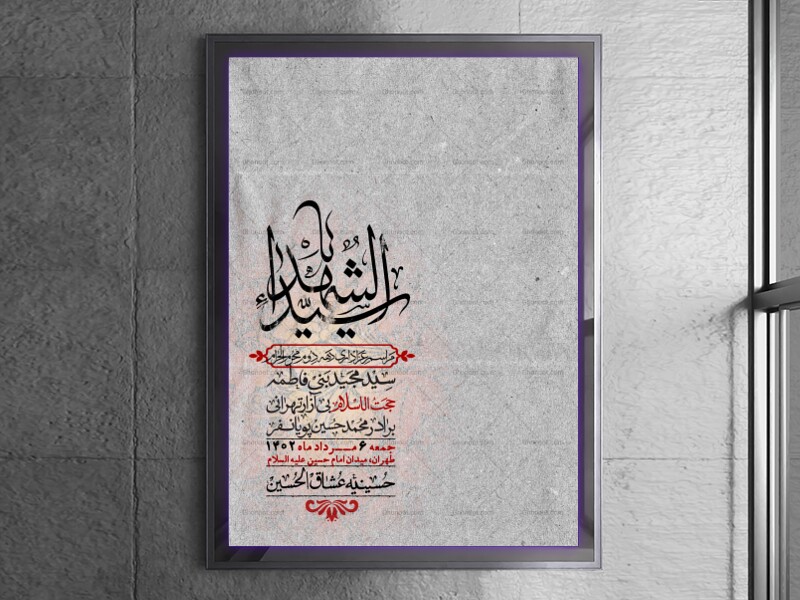 یا سید الشهداء
مراسم عزاداری دهه دوم محرم الحرام
سید مجید بنی فاطمه
حجت الاسلام بی آزار تهرانی
برادر محمد حسین پویانفر
جمعه ۶ مرداد ماه ۱۴۰۲
طهران، میدان امام حسین علیه السلام
حسینیه عشاق الحسین